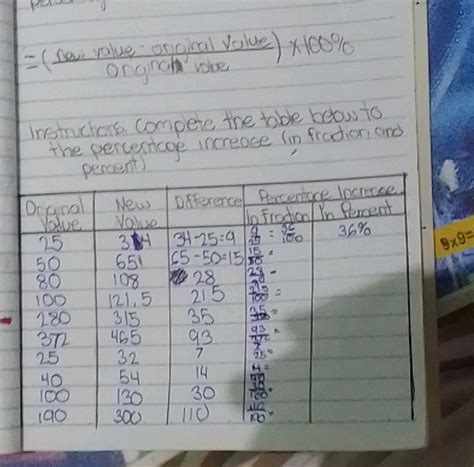 =(new value - original value) × 100%
original value
Instructions: Complete the table below to
the percentage increase (in fraction and
percent)
Original Value New Value Difference Percentage Increase
In fraction In Percent
25 34 34-25=9 9/25 = 36/100 36%
50 65 65-50=15 15/50 =
80 108 28
100 121.5 21.5
280 315 35
372 465 93 93/372 =
25 32 7 7/25 =
40 54 14
100 130 30
190 300 110
9x9=